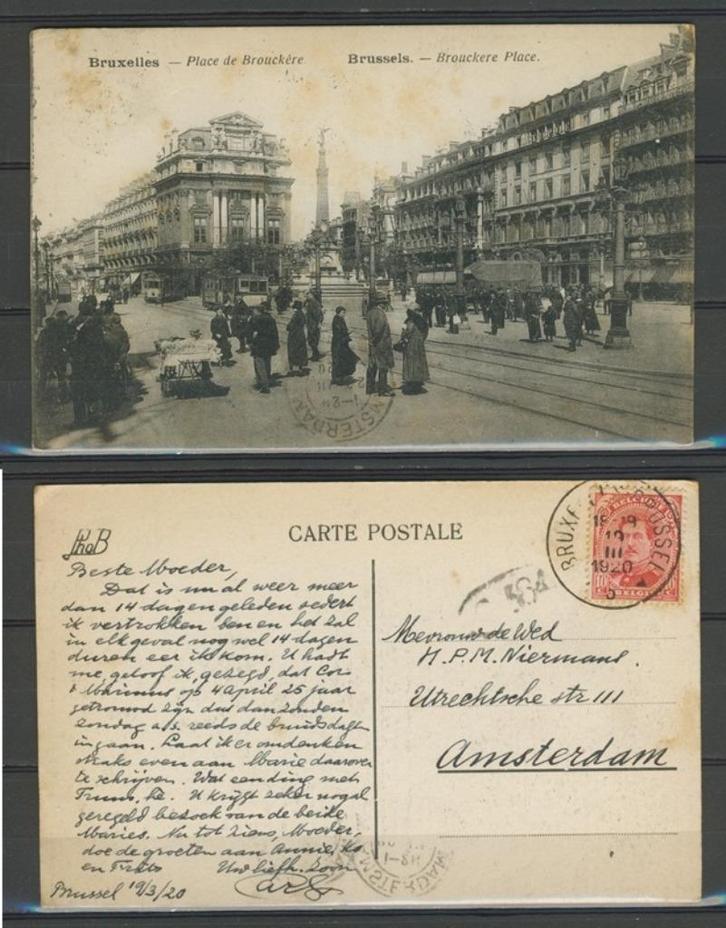 Bruxelles — Place de Brouckère Brussels. — Brouckere Place.
AMSTERDAM
CARTE POSTALE
PhoB
BRUXELLES BRUSSEL
19
III
1920
BELGIQUE
BELGIE
10
Beste Moeder,
Dat is nu al weer meer
dan 14 dagen geleden sedert
ik vertrokken ben en het zal
in elk geval nog wel 14 dagen
duren eer ik kom. U hadt
me, geloof ik, gezegd, dat Cor
& Marinus op 4 april 25 jaar
getrouwd zijn dus dan zouden
zondag a.s. reeds de bruidsdagen
ingaan. Laat ik er omdenken
straks even aan Marie daarover
te schrijven. Wat een ding met
Truus, hè. U krijgt zeker nogal
geregeld bezoek van de beide
Maries. Nu tot ziens, Moeder,
doe de groeten aan Annie,
en Frits Uw liefh. Zoon
Brussel 19/3/20
Mevrouw de Wed
H.P.M. Niermans.
Utrechtsche str 111
Amsterdam
AMSTERDAM